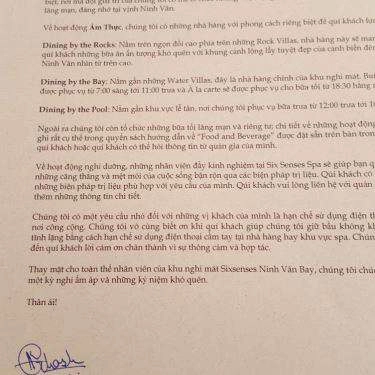 biệt, nơi mà đội
lãng mạn, đáng nhớ tại vịnh Ninh Vân.
Về hoạt động Ẩm Thực, chúng tôi có những nhà hàng với phong cách riêng biệt để quí khách lựa
Dining by the Rocks: Nằm trên ngọn đồi cao phía trên những Rock Villas, nhà hàng này sẽ man
quí khách những bữa ăn ấn tượng khó quên với khung cảnh lộng lẫy tuyệt đẹp của cảnh biển đê
Ninh Vân nhìn từ trên cao.
Dining by the Bay: Nằm gần những Water Villas, đây là nhà hàng chính của khu nghỉ mát. Buf
được phục vụ từ 7:00 sáng tới 11:00 trưa và A la carte sẽ được phục vụ cho bữa tối từ 18:30 hàng n
Dining by the Pool: Nằm gần khu vực lễ tân, nơi chúng tôi phục vụ bữa trưa từ 12:00 trưa tới 16
Ngoài ra chúng tôi còn tổ chức những bữa tối lãng mạn và riêng tư; chi tiết về những hoạt động
ghi rất cụ thể trong quyển sách hướng dẫn về "Food and Beverage" được đặt sẵn trên bàn tron
quí khách hoặc quí khách có thể hỏi thông tin từ quản gia của mình.
Về hoạt động nghỉ dưỡng, những nhân viên đầy kinh nghiệm tại Six Senses Spa sẽ giúp bạn qu
những căng thẳng và mệt mỏi của cuộc sống bận rộn qua các biện pháp trị liệu. Quí khách có
những biện pháp trị liệu phù hợp với yêu cầu của mình. Quí khách vui lòng liên hệ với quản
thêm những thông tin chi tiết.
Chúng tôi có một yêu cầu nhỏ đối với những vị khách của mình là hạn chế sử dụng điện th
nơi công cộng. Chúng tôi vô cùng biết ơn khi quí khách giúp chúng tôi giữ bầu không kh
tĩnh lặng bằng cách hạn chế sử dụng điện thoại cầm tay tại nhà hàng hay khu vực spa. Chún
đến quí khách lời cảm ơn chân thành vì sự thông cảm và hợp tác.
Thay mặt cho toàn thể nhân viên của khu nghỉ mát Sixsenses Ninh Vân Bay, chúng tôi chúc
một kỳ nghỉ ấm áp và những kỷ niệm khó quên.
Thân ái!